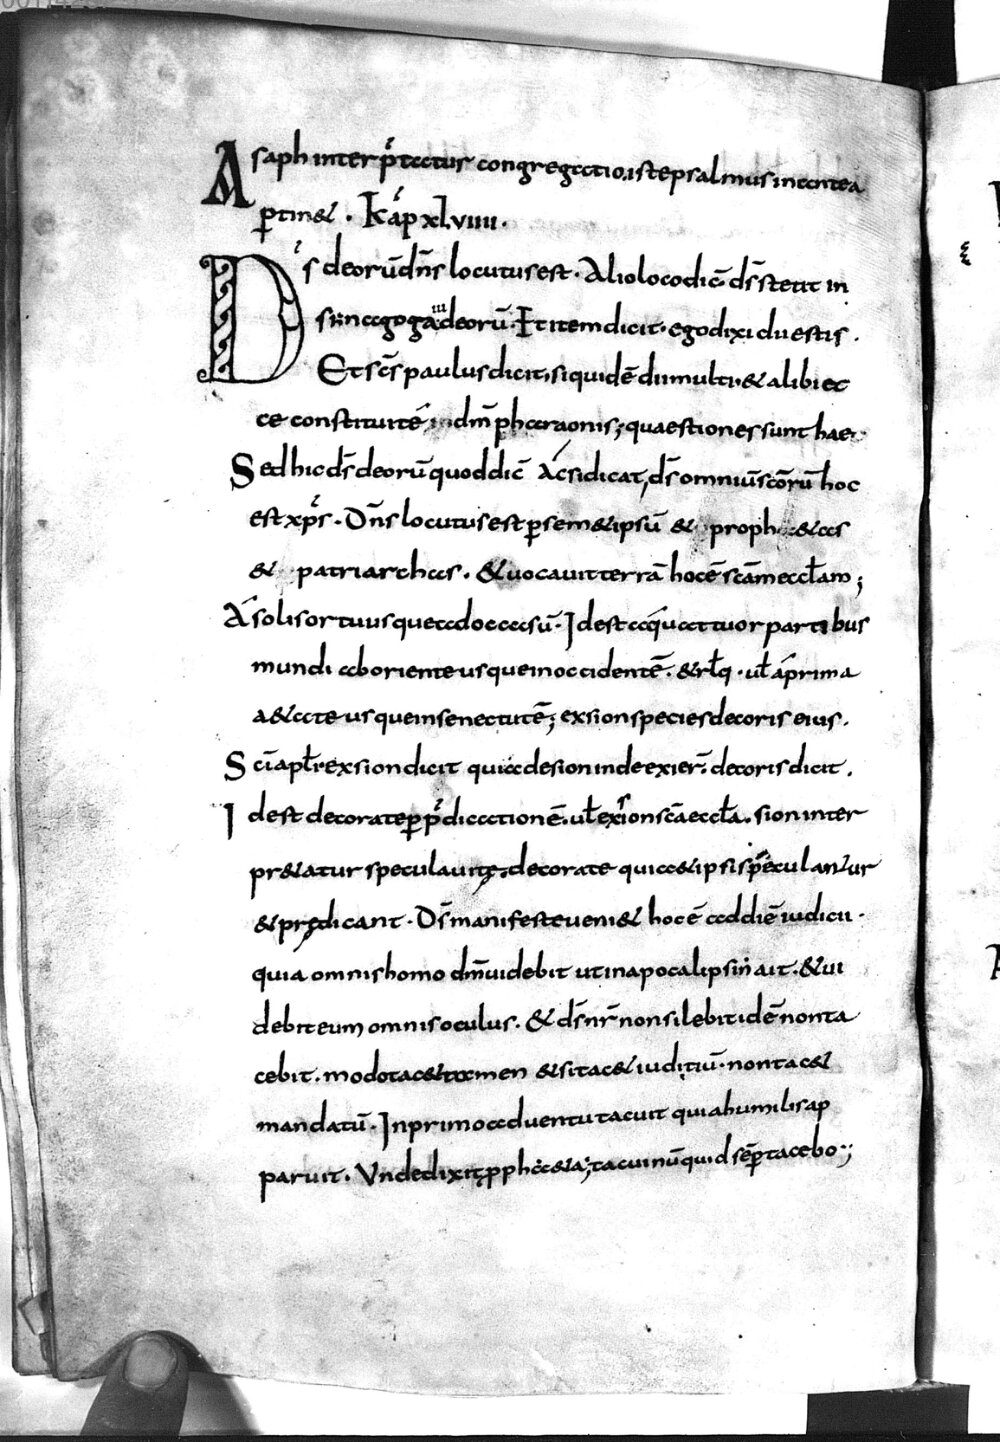 Asaph interp̄tatus congregatio. iste psalmus in antea
ptin& . kap̄ xl.viiii.
Ds̄ deorū dn̄s locutus est. Alio loco dic̄ ds̄ stetit in
sẏnagoga deorū. Et item dicit. ego dixi dii estis.
Et sc̄s paulus dicit, siquidē dii multi. & alibi ec
ce constitui tē dm̄ pharaonis; quaestiones sunt hae.
Sed hic ds̄ deorū quod dic̄ ac si dicat, ds̄ omniū sc̄orū hoc
est xp̄s. Dn̄s locutus est p sem&ipsū & proph&as
& patriarchas. & uocauit terrā hoc ē sc̄am eccłam;
A solis ortu usque ad occasū. Id est a quattuor partibus
mundi ab oriente usque in occidentē. & rłq. uł a prima
a&ate usque in senectutē; ex sion species decoris eius.
Sc̄i apłi ex sion dicit quia de sion inde exier̄. decoris dicit.
Id est decorate p p̄dicationē. uł ex sion sc̄a eccła. sion inter
pr&atur speculauitę. decorate quia & ipsi speculantur
& prędicant. Ds̄ manifeste ueni& hoc ē ad diē iudicii.
quia omnis homo dm̄ uidebit ut in apocalipsin ait. & ui
debit eum omnis oculus. & ds̄ nr̄ non silebit idē non ta
cebit. modo tac& tamen & si tac& iuditiū. non tac&
mandatū. In primo aduentu tacuit quia humilis ap
paruit. Unde dixit p ph&a; tacui nūquid sēp tacebo;